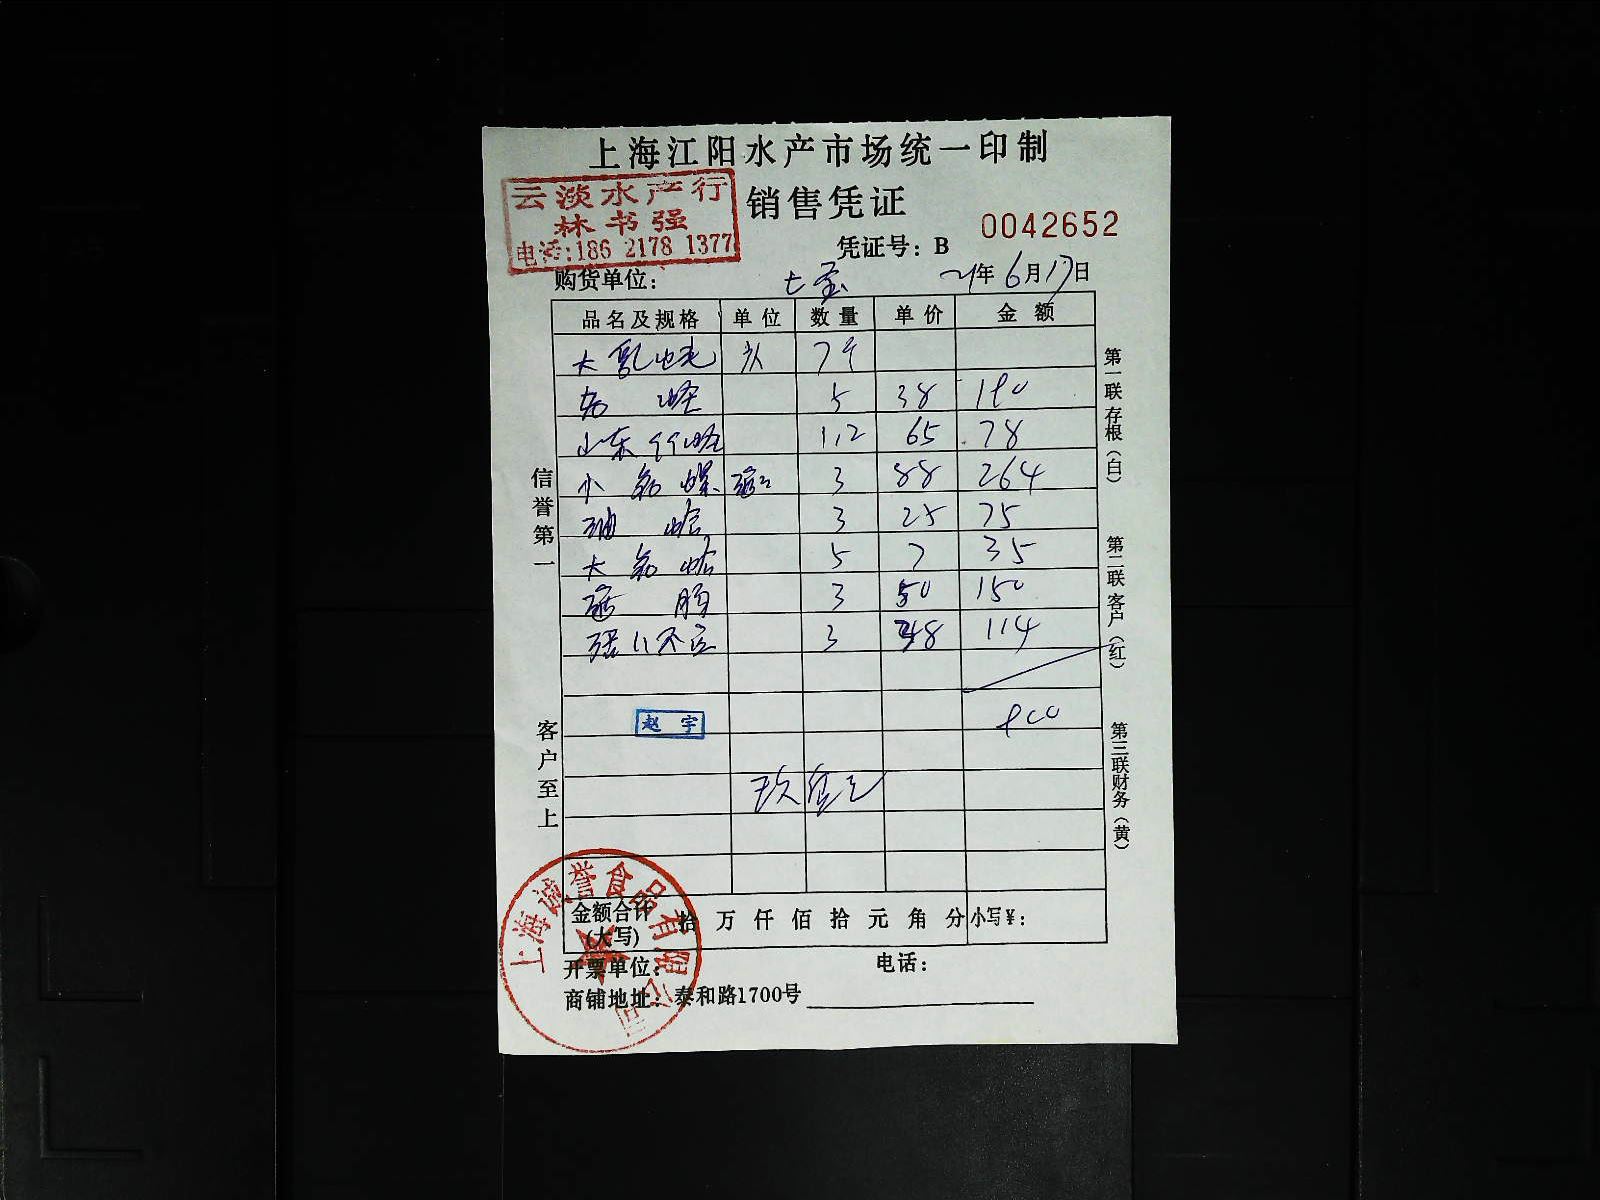 上海江阳水产市场统一印制
云淡水产行
林书强
电话:186 2178 1377
销售凭证
凭证号: B 0042652
购货单位: 七宝 21年6月17日
品名及规格 单位 数量 单价 金额
大
5 38 190
山东 1.2 65 78
小 3 88 264
3 25 75
大 5 7 35
3 50 150
3 38 114
900
赵宇
信誉第一
客户至上
第一联存根(白)
第二联客户(红)
第三联财务(黄)
金额合计(大写) 拾 万 仟 佰 拾 元 角 分 小写¥:
开票单位: 电话:
商铺地址: 泰和路1700号
上海诚誉食品有限公司